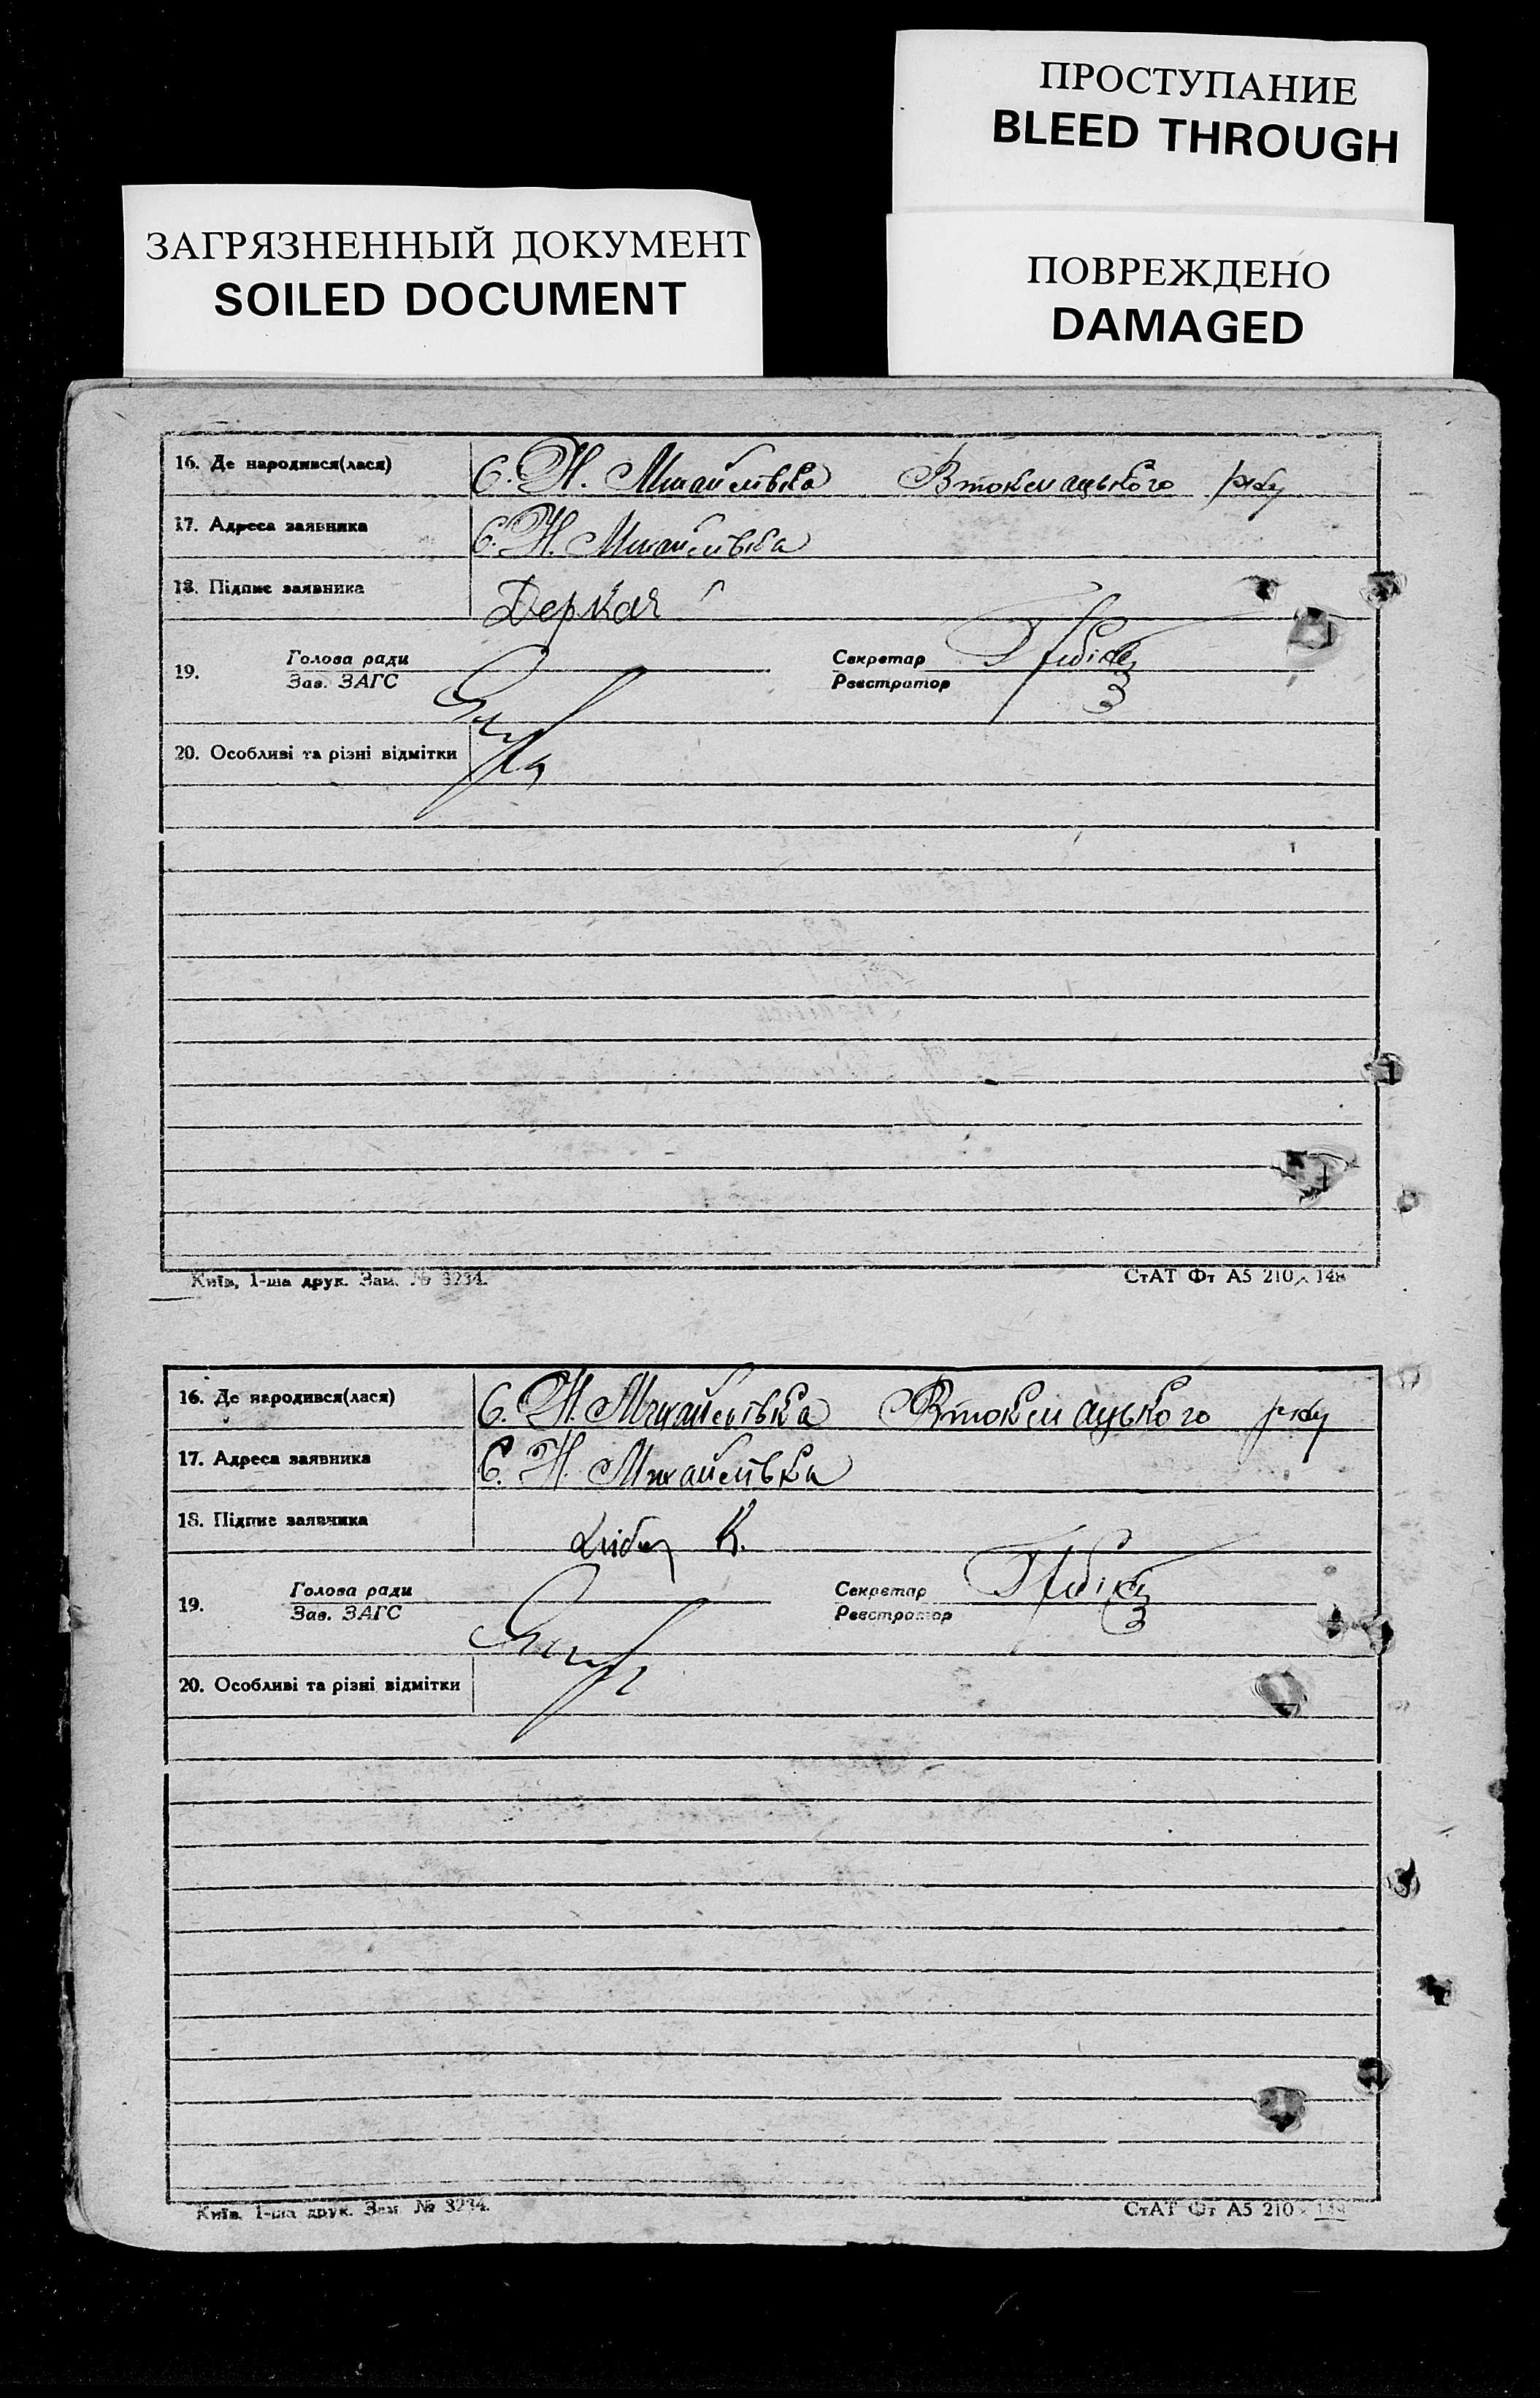 ПРОСТУПАНИЕ
BLEED THROUGH
ЗАГРЯЗНЕННЫЙ ДОКУМЕНТ
SOILED DOCUMENT
ПОВРЕЖДЕНО
DAMAGED
16. Де народився(лася) С. Н. Михайлівка Втокмацького р-ну
17. Адреса заявника С. Н. Михайлівка
18. Підпис заявника Деркач
19. Голова ради Секретар
Зав. ЗАГС Реєстратор
20. Особливі та різні відмітки
Київ, 1-ша друк. Зам. № 3234. СтАТ Фт А5 210×148
16. Де народився(лася) С. Н. Михайлівка Втокмацького р-ну
17. Адреса заявника С. Н. Михайлівка
18. Підпис заявника К.
19. Голова ради Секретар
Зав. ЗАГС Реєстратор
20. Особливі та різні відмітки
Київ, 1-ша друк. Зам. № 3234. СтАТ Фт А5 210×148